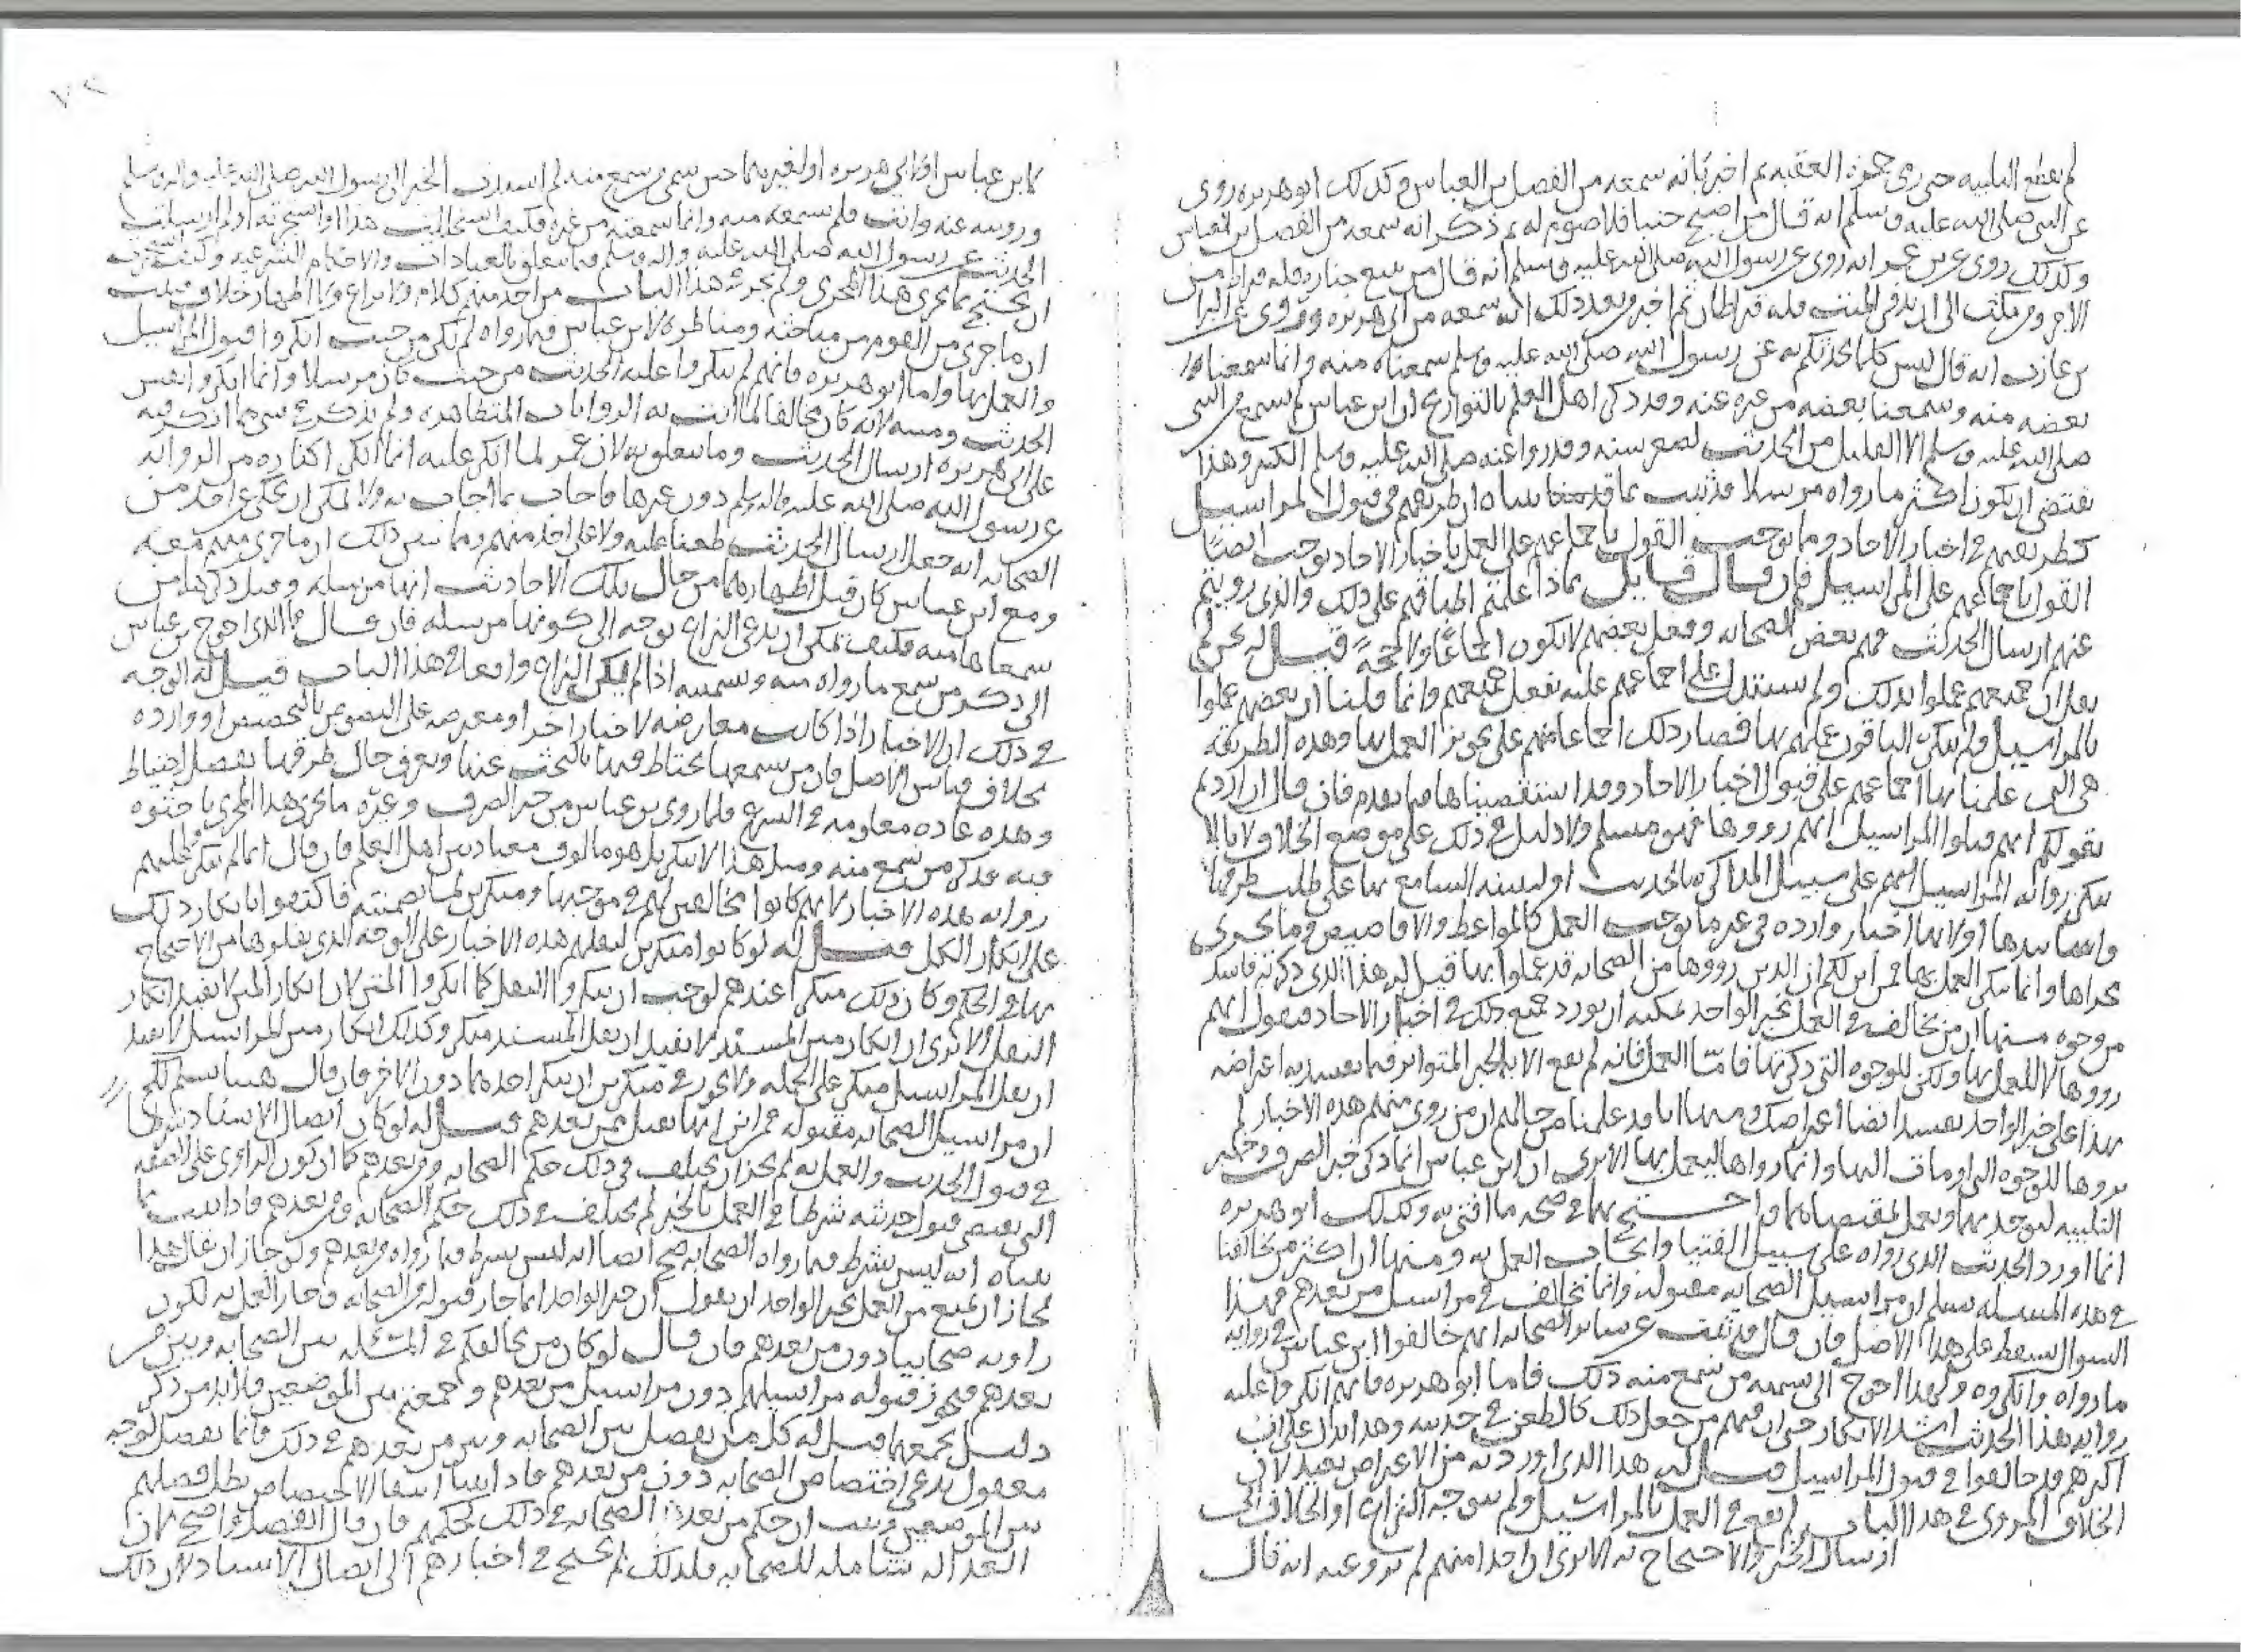 لم يقطع التلبيه حتى رمى جمرة العقبه ثم اخبر بانه سمعه من الفضل بن العباس وكذلك ابو هريره روى
عن النبي صلى الله عليه وسلم انه قال من اصبح جنبا فلا صوم له ثم ذكر انه سمعه من الفضل بن العباس
وكذلك روى عن بن عمر انه روى عن رسول الله صلى الله عليه وسلم انه قال من تبع جنازه فله قيراط من
الاجر ومن مكث الى ان يدفن الميت فله قيراطان ثم اخبر بعد ذلك انه سمعه من ابي هريره وروى عن البرا
بن عازب انه قال ليس كلما نحدثكم به عن رسول الله صلى الله عليه وسلم سمعناه منه وانما سمعنا
بعضه منه وسمعنا بعضه من غيره عنه وقد ذكر اهل العلم بالتواريخ ان ابن عباس لم يسمع من النبي
صلى الله عليه وسلم الا القليل من الحديث لصغر سنه وقد روا عنه صلى الله عليه وسلم الكثير وهذا
يقتضي ان يكون اكثر ما رواه مرسلا فثبت بما قدمنا ان طريقهم في قبول المراسيل
كطريقهم في اخبار الاحاد وما يوجب القول باجماعهم على العمل باخبار الاحاد يوجب ايضا
القول باجماعهم على المراسيل فان قال قايل بماذا علمتم اطباقهم على ذلك والذي رويتم
عنهم ارسال الحديث فهم بعض الصحابه وفعل بعضهم لا يكون اجماعا ولا حجة قيل له نحن لم
نقل ان جميعهم عملوا بذلك ولم نستدل على اجماعهم عليه بفعل جميعهم وانما قلنا ان بعضهم عملوا
بالمراسيل ولم ينكر الباقون عملهم بها فصار ذلك اجماعا منهم على تجويز العمل بها وهذه الطريقه
هي التي علمنا بها اجماعهم على قبول اخبار الاحاد وقد استقصيناها فيما تقدم فان قال ان اردتم
بقولكم انهم قبلوا المراسيل انهم رووها فهو مسلم ولا دليل في ذلك على موضع الخلاف لانا لا
ننكر روايه المراسيل على سبيل المذاكره بالحديث او لينبه السامع بها على طلب طرقها
واسانيدها او لانها اخبار وارده في غير ما يوجب العمل كالمواعظ والاقاصيص وما يجري
مجراها وانما ننكر العمل بها فمن اين لكم ان الذين رووها من الصحابه قد عملوا بها قيل له هذا الذي ذكرته فاسد
من وجوه منها ان من يخالف في العمل بخبر الواحد يمكنه ان يورد جميع ذلك في اخبار الاحاد فيقول انهم
رووها لا للعمل بها ولكن للوجوه التي ذكرتها فاما العمل فانه لم يقع الا بالخبر المتواتر فيما يفسد به اعتراضه
بهذا على خبر الواحد يفسد ايضا اعتراضك ومنها انا قد علمنا من حالهم ان من روى منهم هذه الاخبار لم
يروها للوجوه التي اومات اليها وانما رواها ليعمل بها الا ترى ان ابن عباس انما ذكر خبر الصرف وخبر
التلبيه ليوخذ بهما ويعمل بمقتضاهما واحتج بها في صحه ما افتى به وكذلك ابو هريره
انما اورد الحديث الذي رواه على سبيل الفتيا وايجاب العمل به ومنها ان اكثر من يخالفنا
في هذه المسئله يسلم ان مراسيل الصحابه مقبوله وانما يخالف في مراسيل من بعدهم فهذا
السوال يسقط على هذا الاصل فان قال قد ثبت عن ساير الصحابه انهم خالفوا ابن عباس في روايه
ما رواه وانكروه ولهذا احوج الى تسميه من سمع منه ذلك فاما ابو هريره فانهم انكروا عليه
روايه هذا الحديث اشد الانكار حتى ان فيهم من جعل ذلك كالطعن في حديثه وهذا يدل على ان
اكثرهم قد خالفوا في قبول المراسيل قيل له هذا الذي اوردته من الاعتراض بعيد لان
الخلاف المروي في هذا الباب لم يقع في العمل بالمراسيل ولم يتوجه النزاع او الخلاف الى
ارسال الخبر والاحتجاج به الا ترى ان واحدا منهم لم يرو عنه انه قال
لابن عباس او لابي هريره او لغيرهما حين سمى من سمع منه لم اسندت الخبر الى رسول الله صلى الله عليه واله وسلم
ورويته عنه وانت فلم تسمعه منه وانما سمعته من غيره فكيف استخلت هذا او استجزته او لم ارسلت
الحديث عن رسول الله صلى الله عليه واله وسلم فيما يتعلق بالعبادات والاحكام الشرعيه وكيف استجزت
ان تحتج بما يجري هذا المجرى ولم يجر في هذا الباب من احد منهم كلام ولا نزاع ولا اظهار خلاف فثبت
ان ما جرى من القوم من مباحثه ومناظره لابن عباس فيما رواه لم يكن من حيث انكروا قبول المراسيل
والعمل بها واما ابو هريره فانهم لم ينكروا عليه الحديث من حيث كان مرسلا وانما انكروا نفس
الحديث ومتنه لانه كان مخالفا لما اتت به الروايات المتظاهره ولم يذكر في شي مما انكر فيه
على ابي هريره ارسال الحديث وما يتعلق به لان عمر لما انكر عليه انما انكر اكثاره من الروايه
عن رسول الله صلى الله عليه واله وسلم دون غيرها فاجاب بما اجاب به ولا يمكن ان يحكى عن احد من
الصحابه انه جعل ارسال الحديث طعنا عليه ولا على احد منهم ومما يبين ذلك ان ما جرى منهم معه
ومع ابن عباس كان قبل اظهارهما من حال تلك الاحاديث انها مرسله وقبل ذكرهما من
سمعاها منه فكيف يمكن ان يدعى النزاع توجه الى كونها مرسله فان قال فما الذي احوج بن عباس
الى ذكر من سمع ما رواه منه وتسميته اذا لم يكن النزاع واقعا في هذا الباب قيل له الوجه
في ذلك ان الاخبار اذا كانت معارضه لاخبار اخر او معترضه على النصوص بالتخصيص او وارده
بخلاف قياس الاصل فان من يسمعها يحتاط فيها بالبحث عنها وتعرف حال طرقها بفضل احتياط
وهذه عاده معلومه في الشرع فلما روى بن عباس من خبر الصرف وغيره ما يجري هذا المجرى باحثوه
فيه فذكر من سمع منه ومثل هذا لا ينكر بل هو مالوف معتاد بين اهل العلم فان قال انما لم ينكر عليهم
روايه هذه الاخبار لانهم كانوا مخالفين لهم في موجبها ومنكرين لما تضمنته فاكتفوا بانكار ذلك
على انكار الكل قيل له لو كانوا منكرين لنقلهم هذه الاخبار على الوجه الذي نقلوها من الاحتجاج
بها في الحكم وكان ذلك منكرا عندهم لوجب ان ينكروا النقل كما انكروا المتن لان انكار المتن لا يفيد انكار
النقل الا ترى ان انكار متن المسند لا يفيد ان نقل المسند منكر وكذلك انكار متن المراسيل لا يفيد
ان نقل المراسيل منكر على الجمله ولا يجوز في منكرين ان ينكر احدهما دون الاخر فان قال هبنا نسلم لكم
ان مراسيل الصحابه مقبوله فمن اين انها تقبل ممن بعدهم قيل له لو كان اتصال الاسناد شرطا
في قبول الحديث والعمل به لم يجز ان يختلف في ذلك حكم الصحابه ومن بعدهم كما ان كون الراوي على الصفه
التي يقتضي قبول حديثه شرطا في العمل بالخبر لم يختلف في ذلك حكم الصحابه ومن بعدهم فاذا ثبت بما
بيناه انه ليس بشرط فيما رواه الصحابه صح ايضا انه ليس بشرط فيما رواه من بعدهم ولو جاز ان يقال هذا
لجاز ان يمنع من العمل بخبر الواحد ان يقول ان خبر الواحد انما جاز قبوله في الصحابه وجاز العمل به لكون
راويه صحابيا دون من بعدهم فان قال لو كان من يخالفكم في المسئله بين الصحابه وبين من
بعدهم فيجوز قبوله مراسيلهم دون مراسيل من بعدهم وجمعتم بين الموضعين فلا بد من ذكر
دليل يجمعهما قيل له كل من يفصل بين الصحابه وبين من بعدهم في ذلك فانما يفصل لوجه
معقول يدعى اختصاص الصحابه دون من بعدهم فاذا بينا انتفا الاختصاص بطل فصلهم
بين الموضعين وثبت ان حكم من بعد الصحابه في ذلك كحكمهم فان قال الفصل واضح لان
العداله شامله للصحابه فلذلك لم نحتج في اخبارهم الى اتصال الاسناد لان ذلك